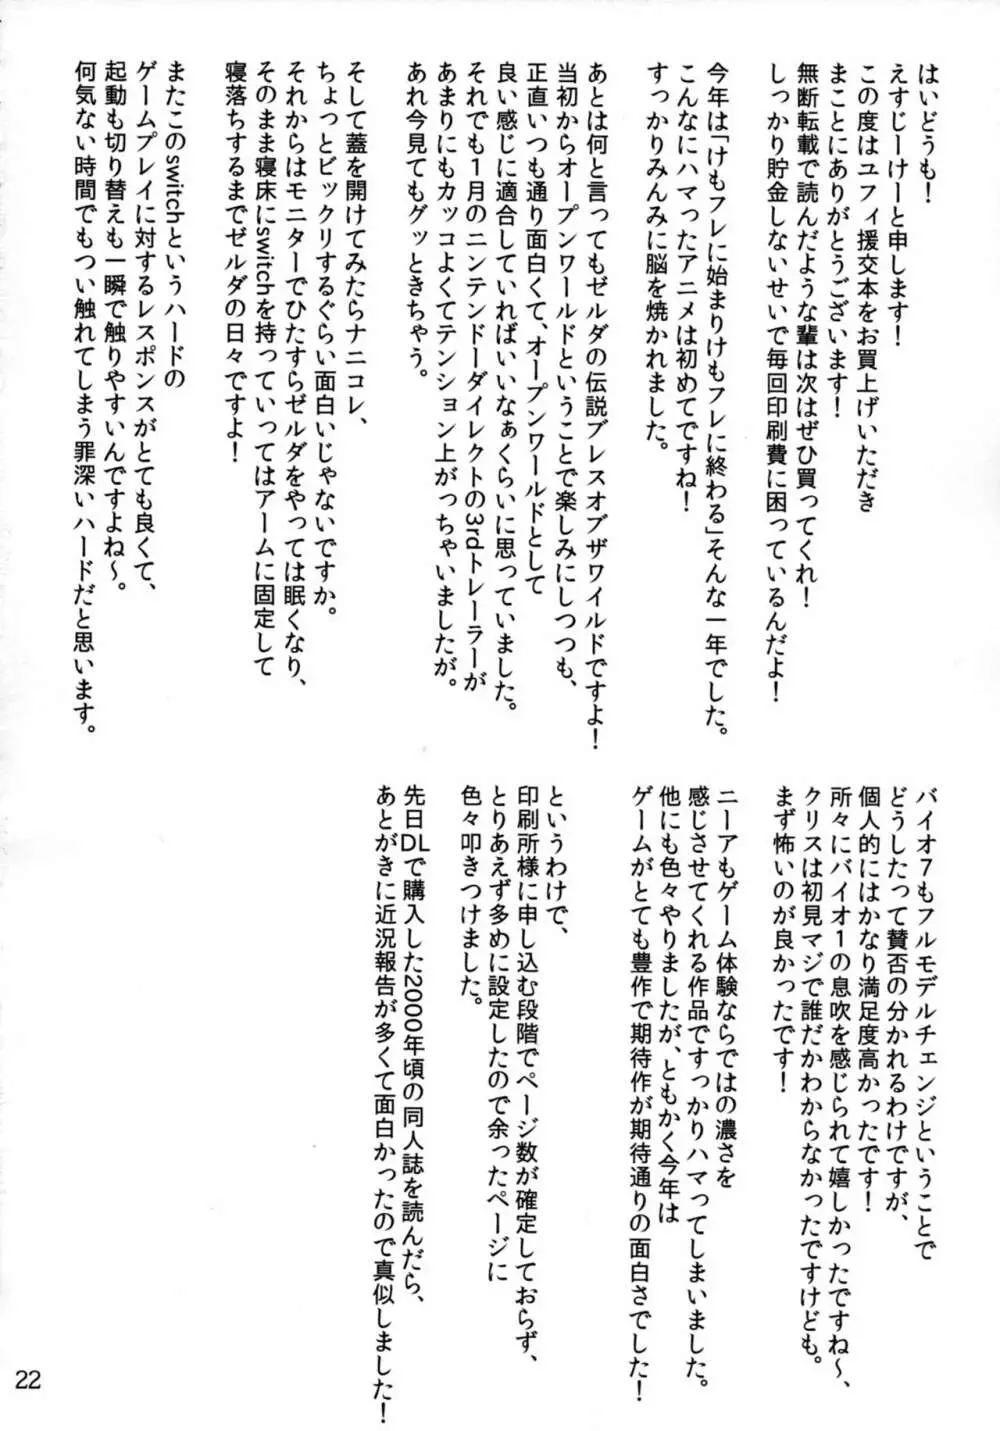 はいどうも！
えすじーけーと申します！
この度はユフィ援交本をお買上げいただき
まことにありがとうございます！
無断転載で読んだような輩は次はぜひ買ってくれ！
しっかり貯金しないせいで毎回印刷費に困っているんだよ！
今年は「けもフレに始まりけもフレに終わる」そんな一年でした。
こんなにハマったアニメは初めてですね！
すっかりみんみに脳を焼かれました。
あとは何と言ってもゼルダの伝説ブレスオブザワイルドですよ！
当初からオープンワールドということで楽しみにしつつも、
正直いつも通り面白くて、オープンワールドとして
良い感じに適合していればいいなぁくらいに思っていました。
それでも1月のニンテンドーダイレクトの3rdトレーラーが
あまりにもカッコよくてテンション上がっちゃいましたが。
あれ今見てもグッときちゃう。
そして蓋を開けてみたらナニコレ、
ちょっとビックリするぐらい面白いじゃないですか。
それからはモニターでひたすらゼルダをやっては眠くなり、
そのまま寝床にswitchを持っていってはアームに固定して
寝落ちするまでゼルダの日々ですよ！
またこのswitchというハードの
ゲームプレイに対するレスポンスがとても良くて、
起動も切り替えも一瞬で触りやすいんですよね～。
何気ない時間でもつい触れてしまう罪深いハードだと思います。
バイオ7もフルモデルチェンジということで
どうしたって賛否の分かれるわけですが、
個人的にはかなり満足度高かったです！
所々にバイオ1の息吹を感じられて嬉しかったですね～、
クリスは初見マジで誰だかわからなかったですけども。
まず怖いのが良かったです！
ニーアもゲーム体験ならではの濃さを
感じさせてくれる作品ですっかりハマってしまいました。
他にも色々やりましたが、ともかく今年は
ゲームがとても豊作で期待作が期待通りの面白さでした！
というわけで、
印刷所様に申し込む段階でページ数が確定しておらず、
とりあえず多めに設定したので余ったページに
色々叩きつけました。
先日DLで購入した2000年頃の同人誌を読んだら、
あとがきに近況報告が多くて面白かったので真似しました！
22